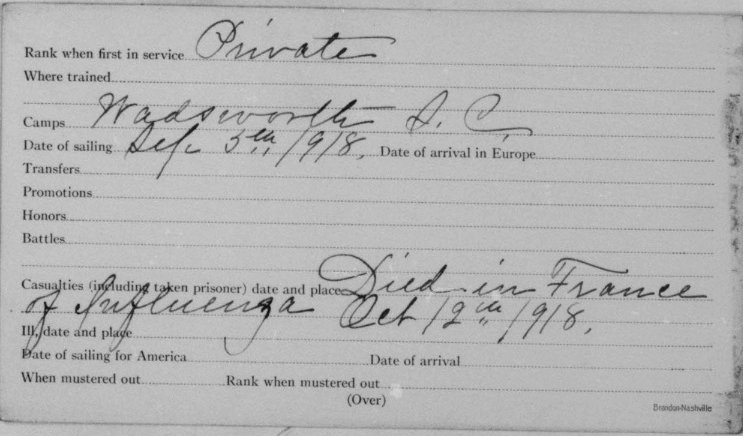 Rank when first in service Private
Where trained
Camps Wadsworth S. C.
Date of sailing Sep. 5th, 1918. Date of arrival in Europe
Transfers
Promotions
Honors
Battles
Casualties (including taken prisoner) date and place Died in France
of Influenza Oct 12th, 1918.
Ill, date and place
Date of sailing for America Date of arrival
When mustered out Rank when mustered out
(Over)
Brandon-Nashville